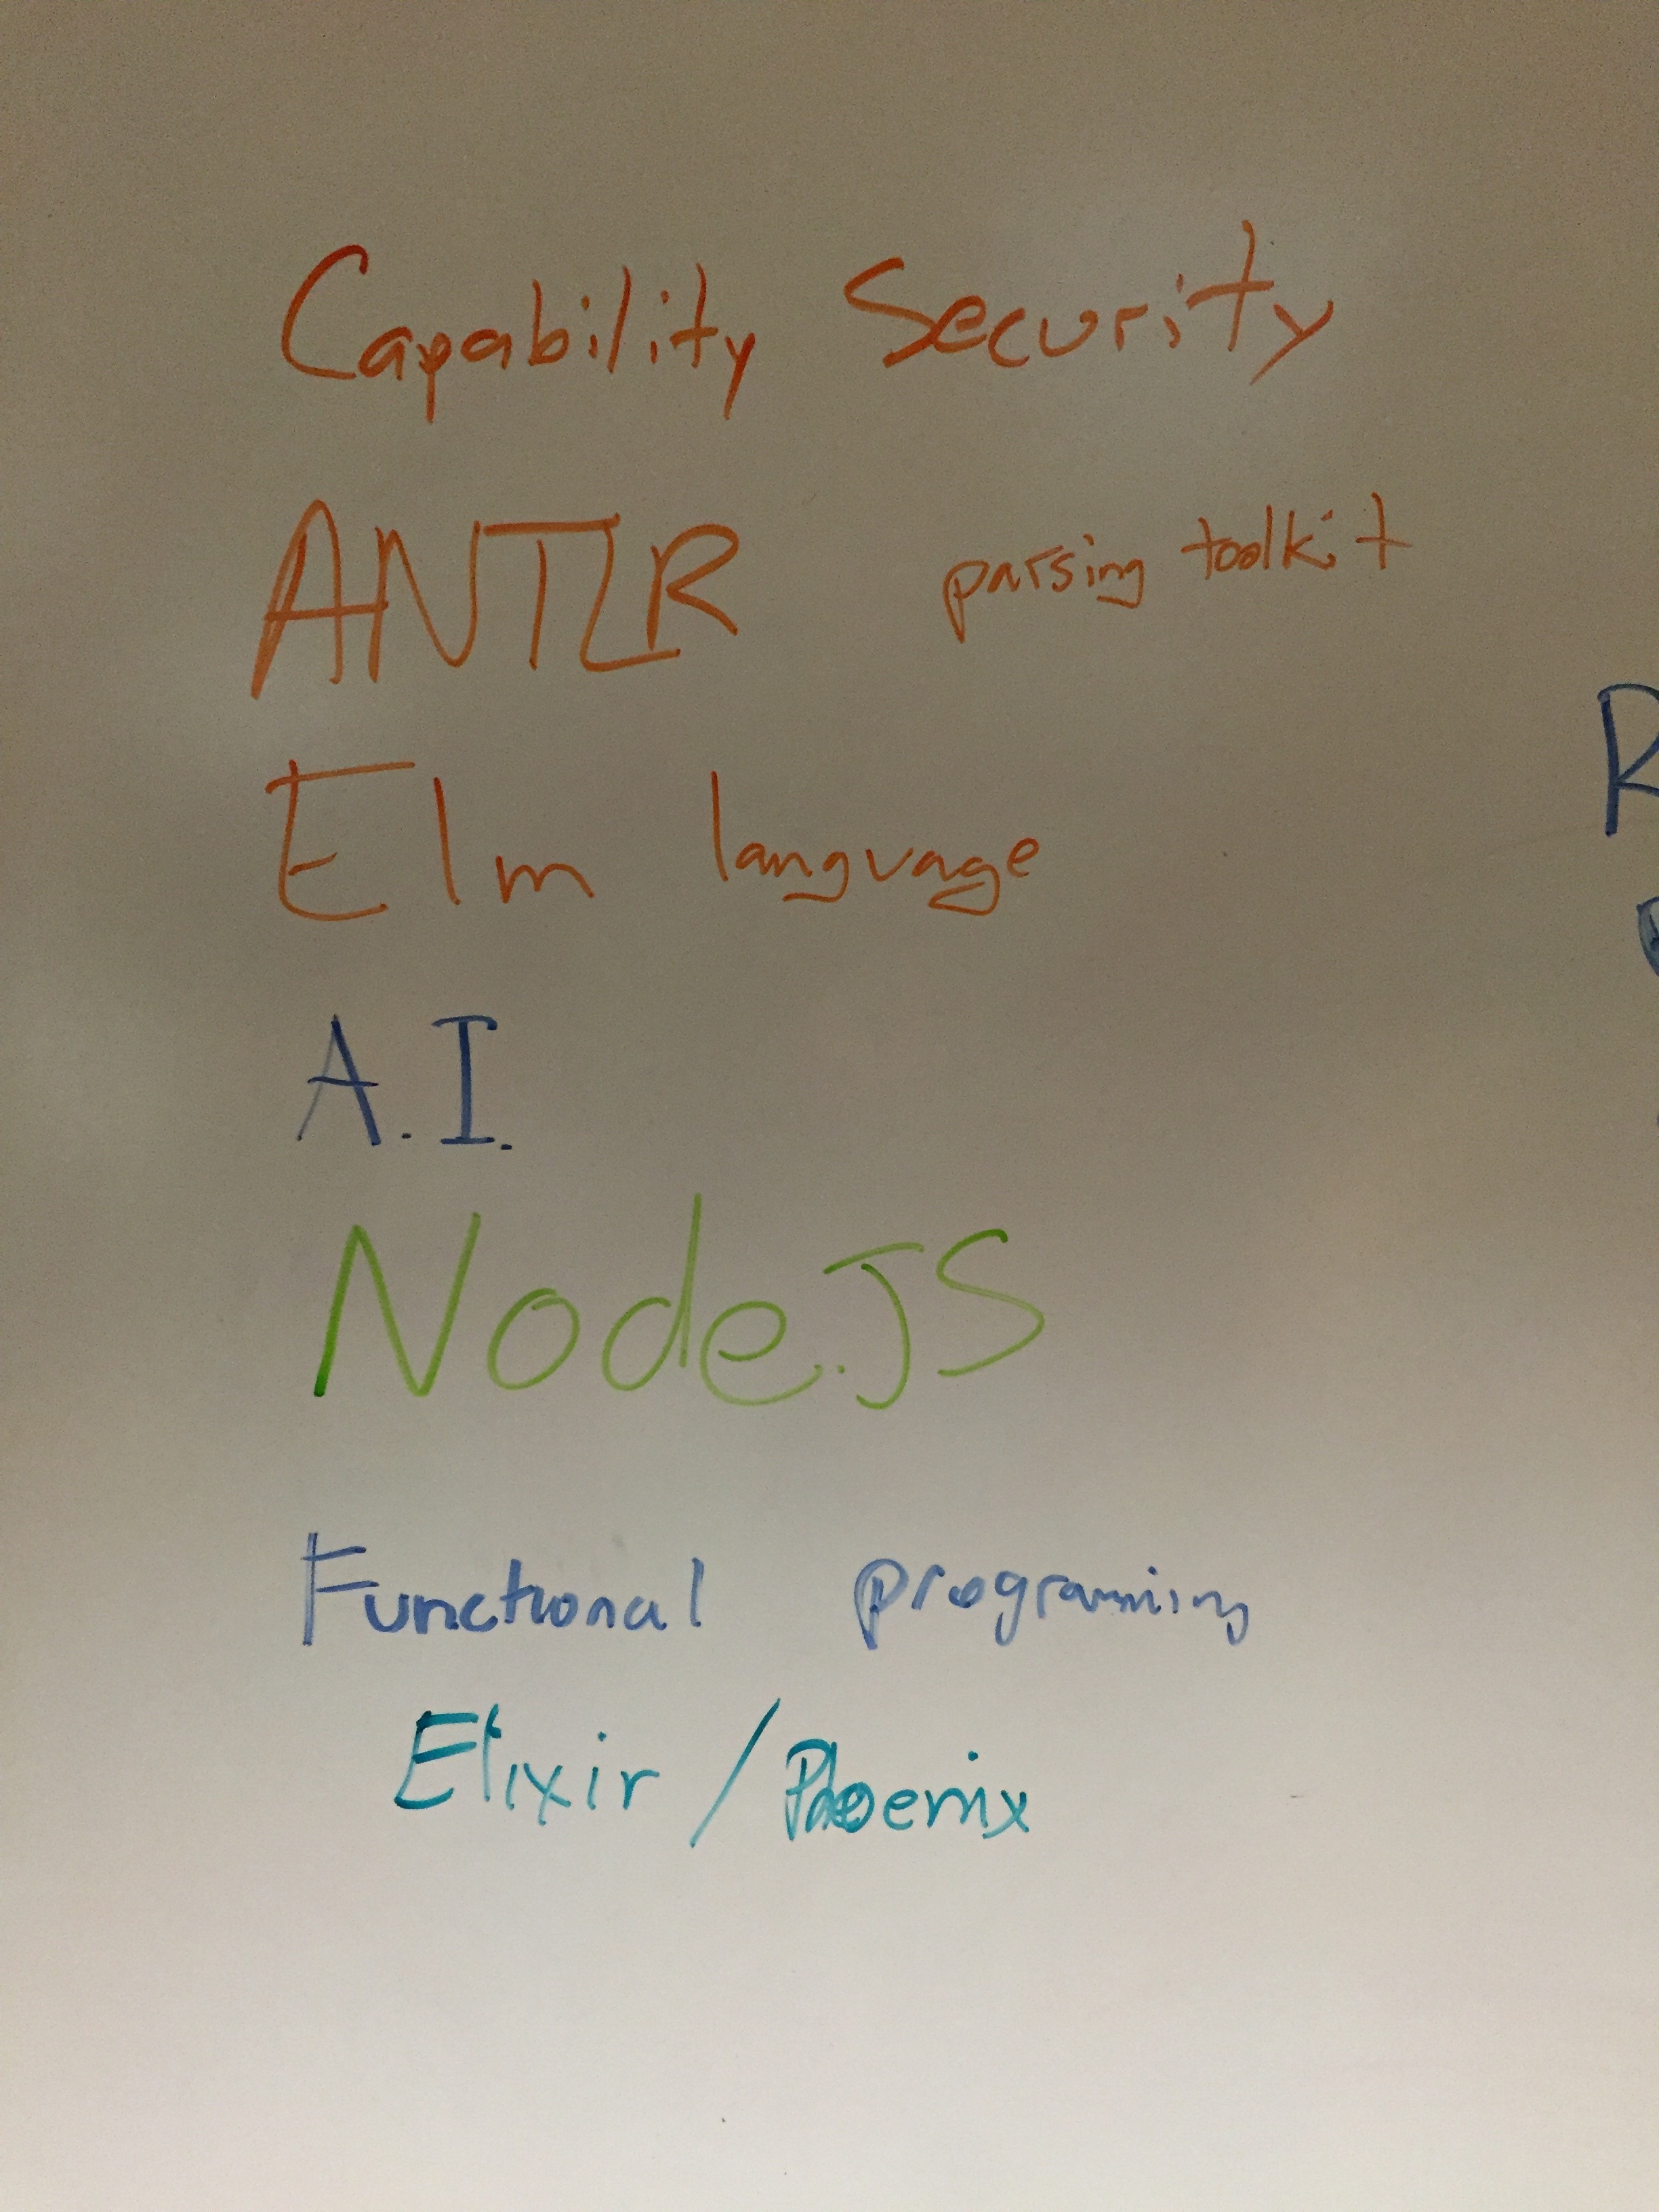 Capability Security
ANTLR parsing toolkit
Elm language
A.I.
Node.JS
Functional programming
Elixir / Phoenix